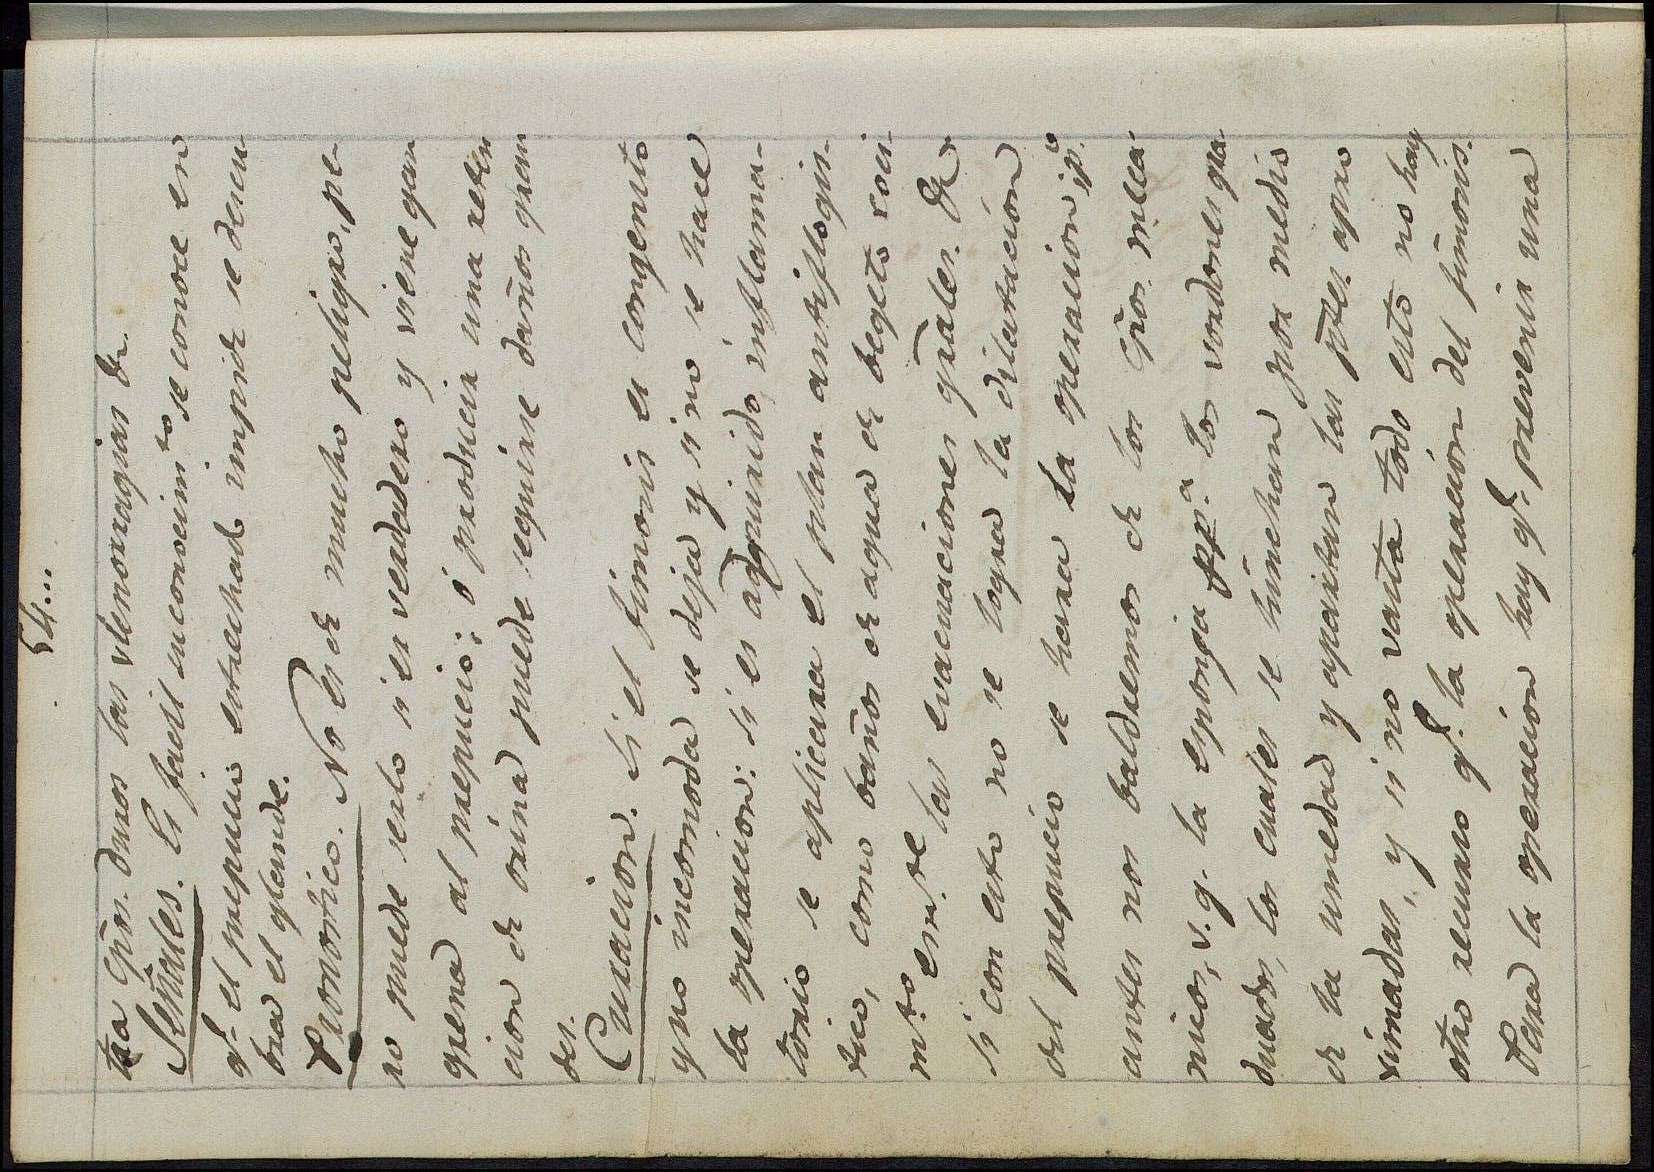 54...
tra cpōs. duros las vlenorragias &.
Señales. Es facil su conocim.to se conoce en
q.e el prepucio estrechado impide se descu-
bra el glande.
Pronostico. No es de mucho peligro, pe-
ro puede serlo si es verdadero y viene gan-
grena al prepucio; ó producir una reten
cion de orina puede seguirse daños gran
des.
Curacion. Si el fimosis es congenito
y no incomoda se deja y si no se hace
la operacion: si es adquirido, inflama-
torio se aplicara el plan antiflogis-
tico, como baños de agua de begeto coci-
m.to em.te las evacuaciones grāles. &
si con esto no se logra la dilatacion
del prepucio se hara la operacion, p.o
antes nos baldremos de los cpōs. meca-
nicos, v. g. la esponja pp.a los vordones gra-
duados, los cuales se hinchan por medio
de la umedad y apartan las ptēs. apro
ximadas, y si no vasta todo esto no hay
otro recurso q.e la operacion del fimosis.
Para la operacion hay q.e prevenir una